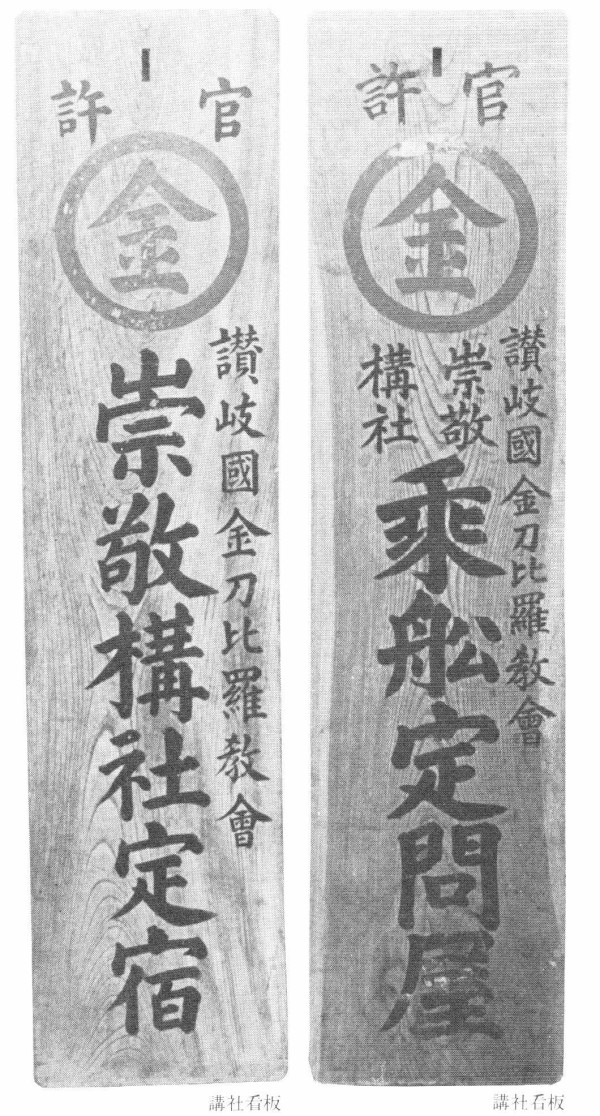 官許
金
讃岐國金刀比羅教會
崇敬
構社
乘舩定問屋
講社看板
官許
金
讃岐國金刀比羅教會
崇敬構社定宿
講社看板